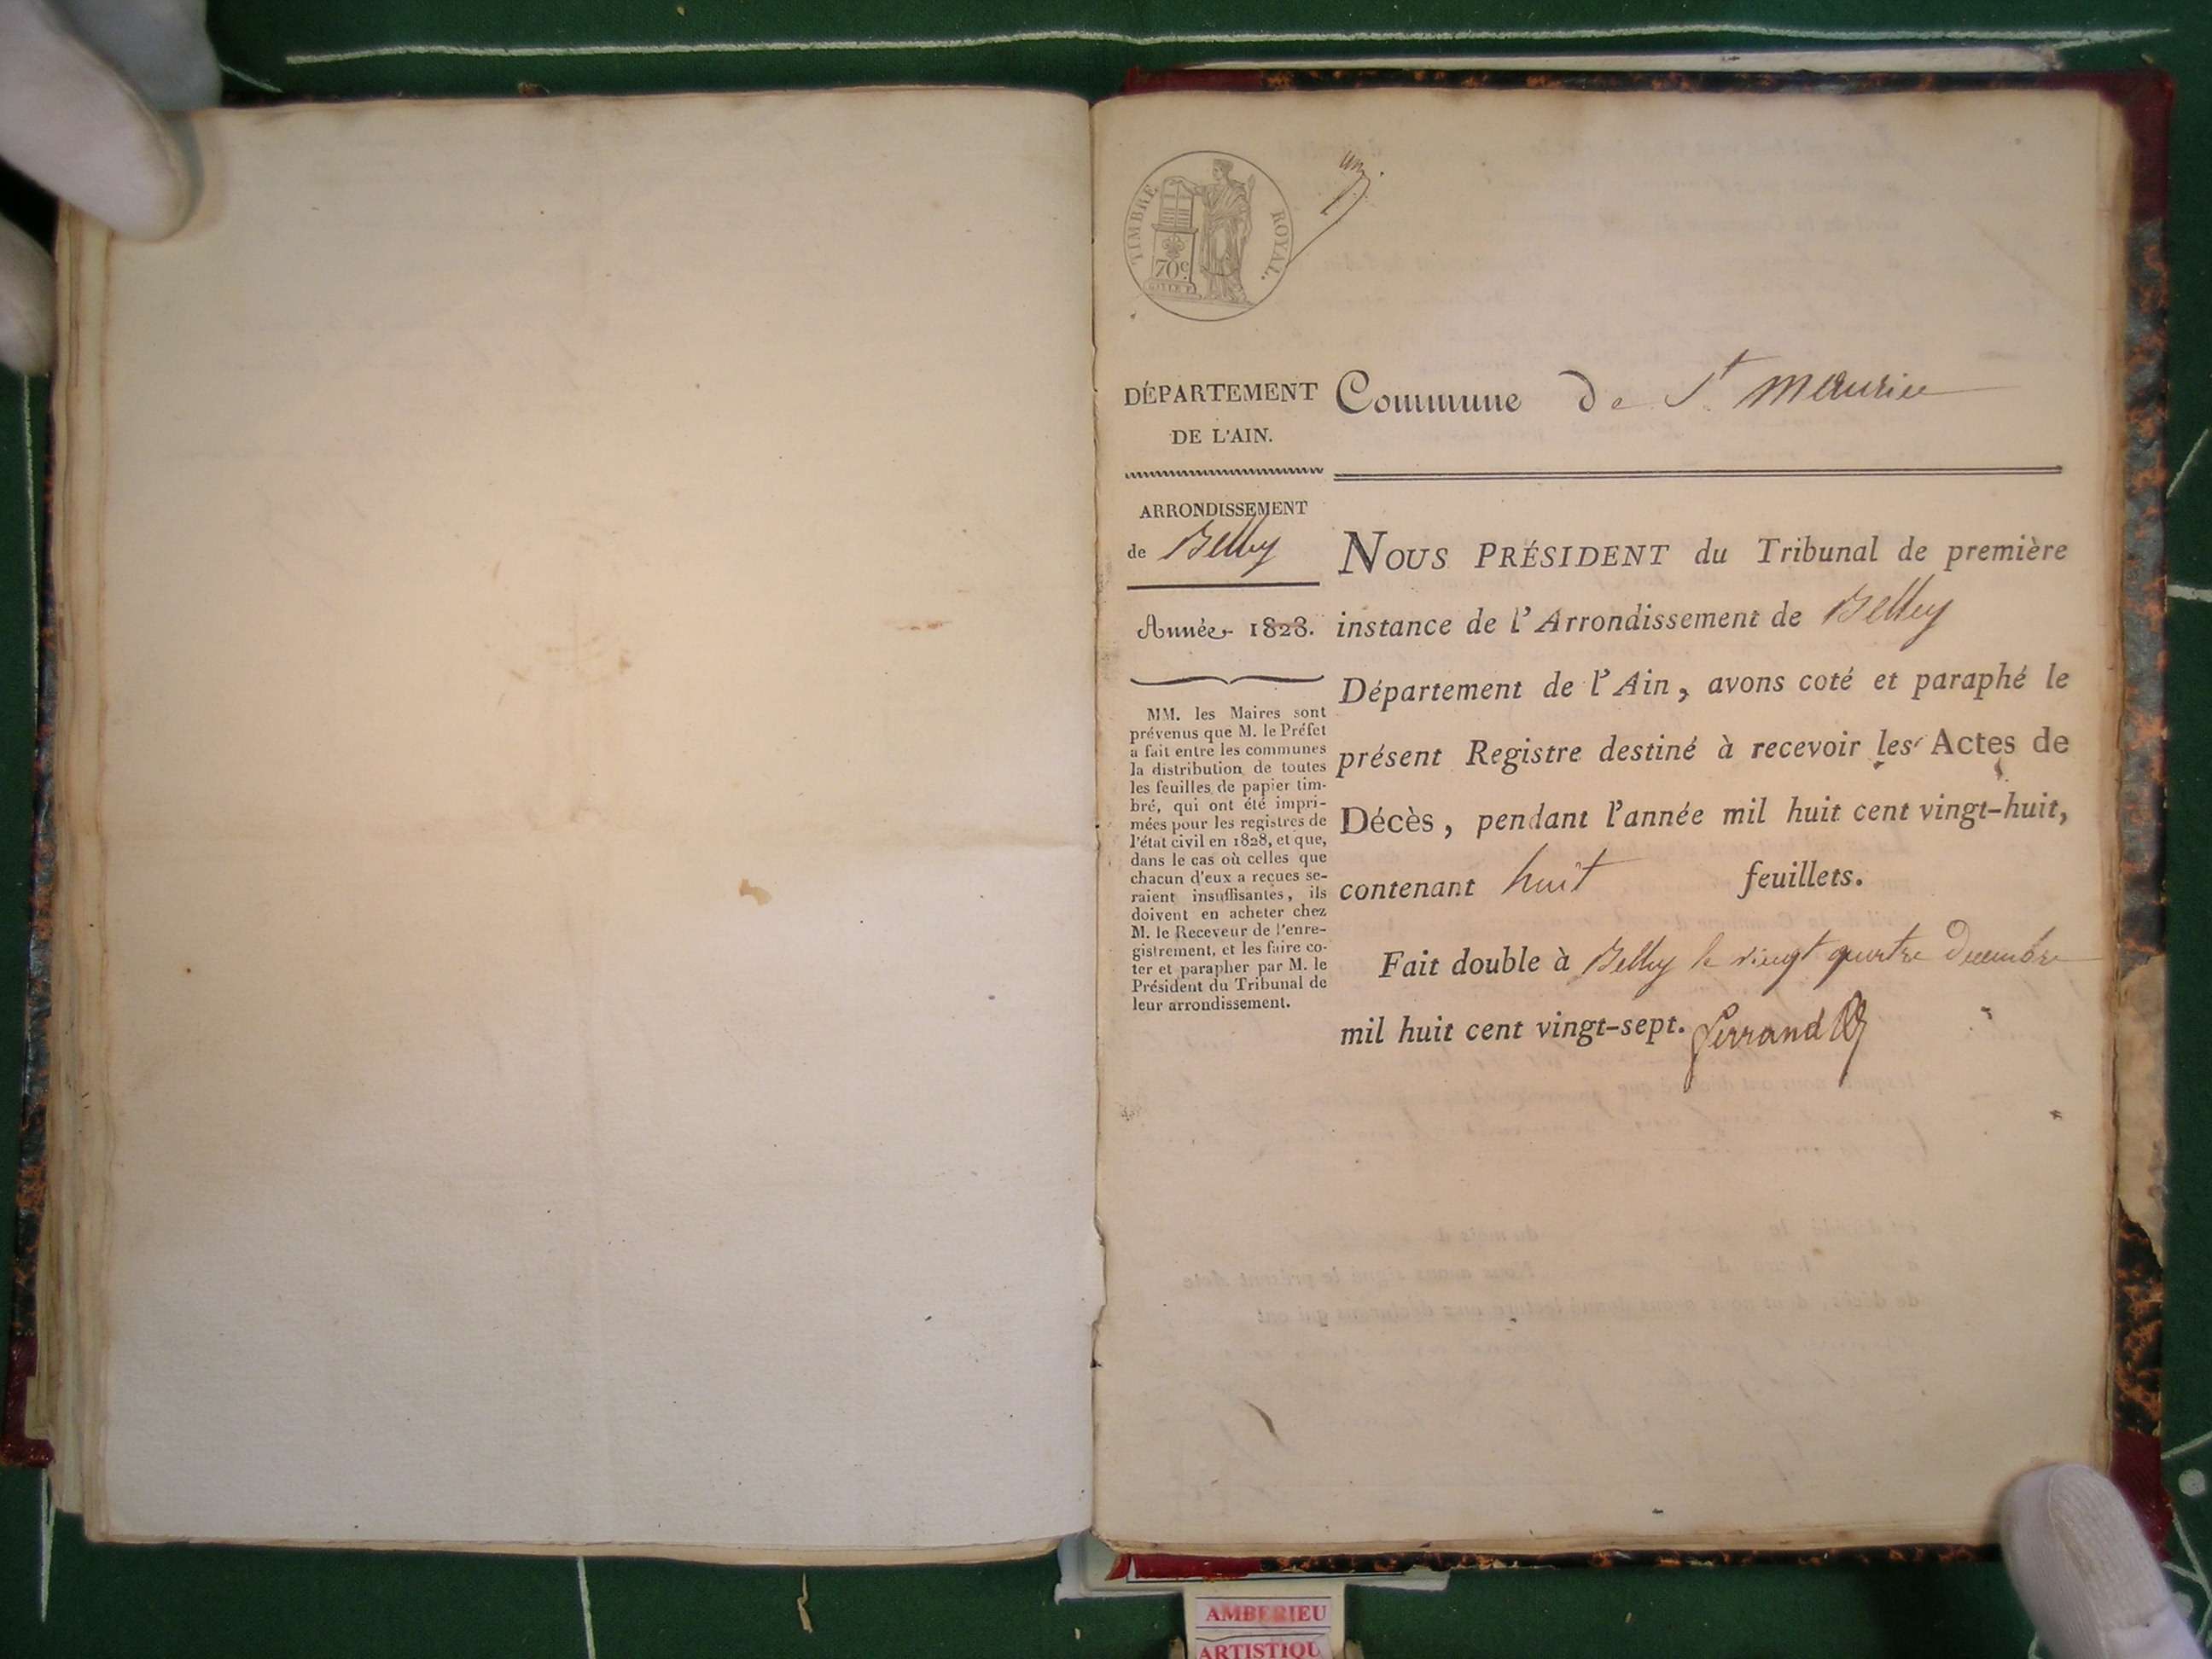 un
TIMBRE ROYAL.
70c
DÉPARTEMENT
DE L'AIN.
Commune De St. Maurice
ARRONDISSEMENT
de Belley
Année 1828.
MM. les Maires sont
prévenus que M. le Préfet
a fait entre les communes
la distribution de toutes
les feuilles de papier tim-
bré, qui ont été impri-
mées pour les registres de
l'état civil en 1828, et que,
dans le cas où celles que
chacun d'eux a reçues se-
raient insuffisantes, ils
doivent en acheter chez
M. le Receveur de l'enre-
gistrement, et les faire co-
ter et parapher par M. le
Président du Tribunal de
leur arrondissement.
NOUS PRÉSIDENT du Tribunal de première
instance de l'Arrondissement de Belley
Département de l'Ain, avons coté et paraphé le
présent Registre destiné à recevoir les Actes de
Décès, pendant l'année mil huit cent vingt-huit,
contenant huit feuillets.
Fait double à Belley le vingt quatre Decembre
mil huit cent vingt-sept. Ferrand
AMBERIEU
ARTISTIQU